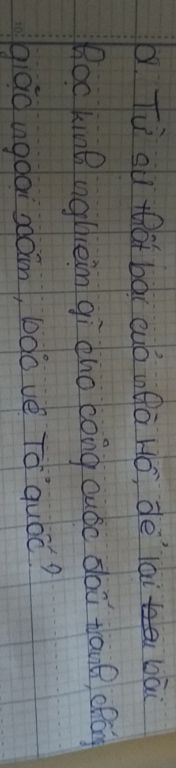 d. Từ sự thất bại của nhà Hồ, để lại bài
học kinh nghiệm gì cho công cuộc đấu tranh, chống
giặc ngoại xâm, bảo vệ Tổ quốc?